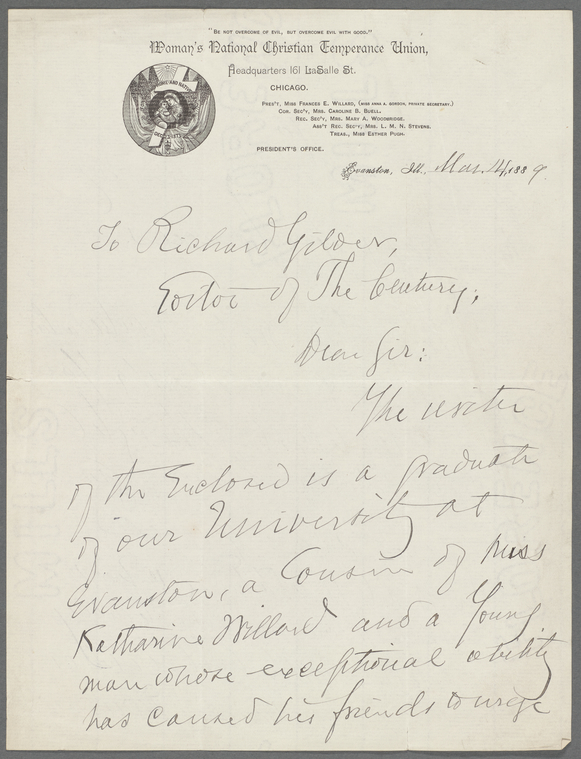 "BE NOT OVERCOME OF EVIL, BUT OVERCOME EVIL WITH GOOD."
Woman's National Christian Temperance Union,
Headquarters 161 LaSalle St.
CHICAGO.
PRES'T, MISS FRANCES E. WILLARD, (MISS ANNA A. GORDON, PRIVATE SECRETARY.)
COR. SEC'Y, MRS. CAROLINE B. BUELL.
REC. SEC'Y, MRS. MARY A. WOODBRIDGE.
ASS'T REC. SEC'Y, MRS. L. M. N. STEVENS.
TREAS., MISS ESTHER PUGH.
PRESIDENT'S OFFICE.
Evanston, Ill., Mar. 14, 1889
To Richard Gilder,
Editor of The Century;
Dear Sir:
The writer
of the Enclosed is a graduate
of our University at
Evanston, a Cousin of Miss
Katharine Willard and a Young
man whose exceptional ability
has caused his friends to urge